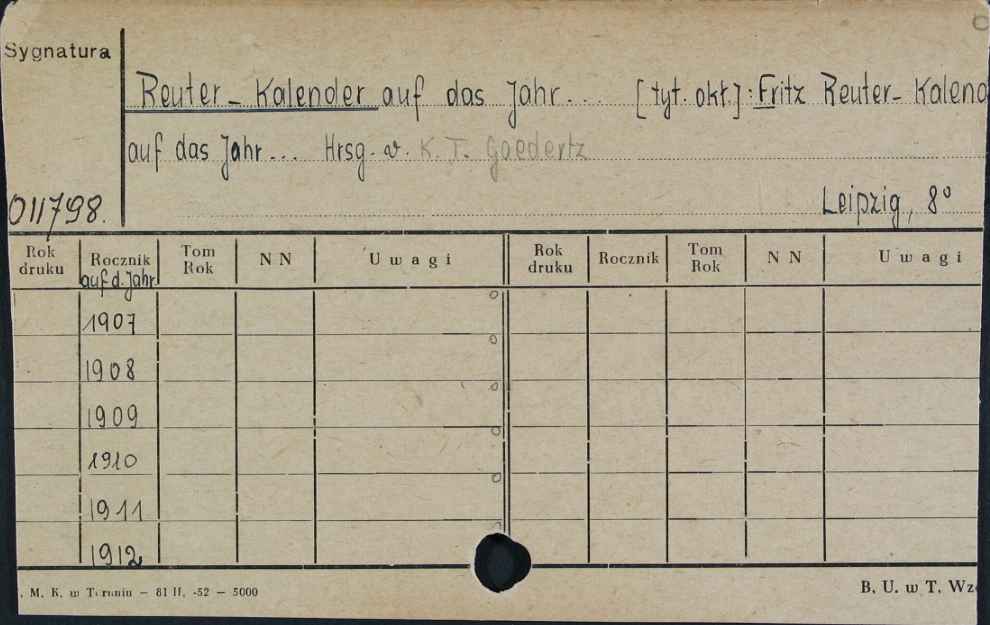 Sygnatura
Reuter-Kalender auf das Jahr... [tyt. okł.]: Fritz Reuter-Kalend
auf das Jahr... Hrsg. v. K. T. Gaedertz
011798.
Leipzig, 8°
Rok druku Rocznik Tom Rok NN Uwagi Rok druku Rocznik Tom Rok NN Uwagi
auf d. Jahr
1907
1908
1909
1910
1911
1912
. M. K. w Toruniu — 81 II. -52 — 5000
B. U. w T. Wz